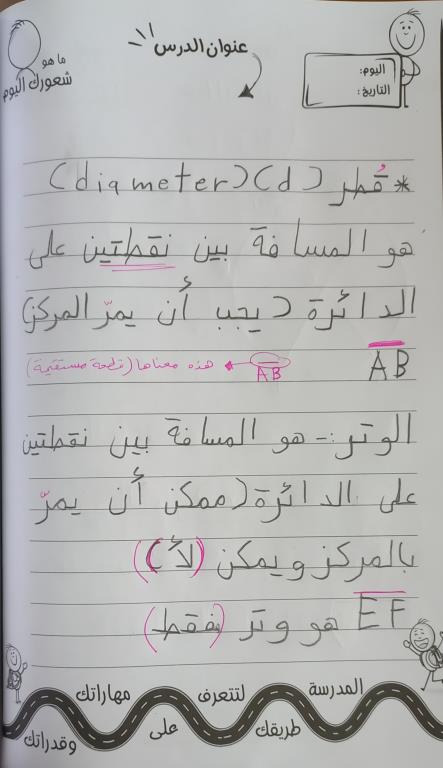 عنوان الدرس
ما هو
شعورك اليوم
اليوم:
التاريخ:
* قُطر (d) (diameter)
هو المسافة بين نقطتين على
الدائرة (يجب أن يمرّ المركز)
AB
AB ← هذه معناها (قطعة مستقيمة)
الوتر:- هو المسافة بين نقطتين
على الدائرة (ممكن أن يمرّ
بالمركز ويمكن (لأ)
EF هو وتر (فقط)
المدرسة
لتتعرف
مهاراتك
طريقك
على
وقدراتك